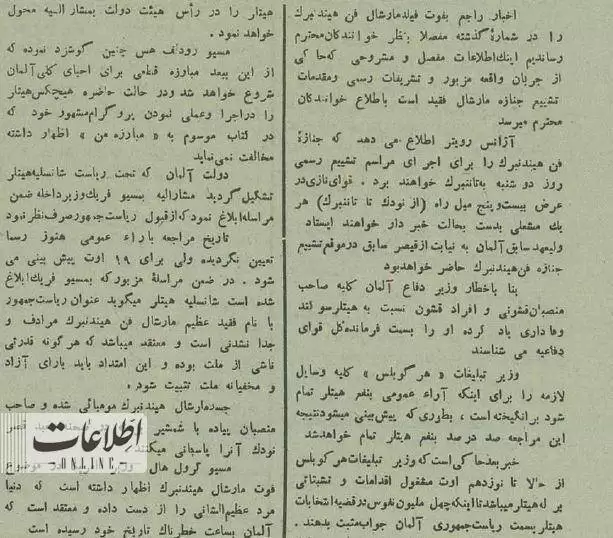 اخبار راجع بفوت فیلد مارشال فن هیندنبرك
را در شمارهٔ گذشته مفصلا بنظر خوانندکان محترم
رساندیم اینك اطلاعات مفصل و مشروحی که حاکی
از جریان واقعه مزبور و تشریفات رسمی و مقدمات
تشییع جنازه مارشال فقید است باطلاع خوانندکان
محترم میرسد
آژانس رویتر اطلاع می دهد که جنازهٔ
فن هیندنبرك را برای اجرای مراسم تشییع رسمی
روز دو شنبه به تاننبرك خواهند برد . قوای نازی در
عرض بیست و پنج میل راه (از نودك تا تاننبرك) هر
یك مشعلی بدست بحالت خبر دار خواهند ایستاد
ولیعهد سابق آلمان به نیابت از قیصر سابق در موقع تشییع
جنازه فن هیندنبرك حاضر خواهد بود
بنا باخطار وزیر دفاع آلمان کلیه صاحب
منصبان قشونی و افراد قشون نسبت به هیتلر سوکند
وفاداری یاد کرده او را بسمت فرمانده کل قوای
دفاعیه می شناسند
وزیر تبلیغات « هر گوبلس » کلیه وسایل
لازمه را برای اینکه آراء عمومی بنفع هیتلر تمام
شود برانگیخته است ، بطوری که پیش بینی میشود نتیجه
این مراجعه صد در صد بنفع هیتلر تمام خواهد شد
خبر بعد حاکی است که وزیر تبلیغات هر کوبلس
از حالا تا نوزدهم اوت مشغول اقدامات و تشبثاتی
بر له هیتلر میباشد تا اینکه چهل ملیون نفوس در قضیه انتخابات
هیتلر بسمت ریاست جمهوری آلمان جواب مثبت بدهند .
هیتلر را در رأس هیئت دولت بمشار الیه محول
خواهد نمود .
مسیو رودلف هس چنین گوشزد نموده که
از این ببعد مبارزه قطعی برای احیای کلی آلمان
شروع خواهد شد و در حالت حاضره هیچکس هیتلر
را در اجرا و عملی نمودن پروگرام مشهور خود که
در کتاب موسوم به « مبارزه من » اظهار داشته
مخالفت نمی نماید
دولت آلمان که تحت ریاست شانسلیه هیتلر
تشکیل گردید مشارالیه بمسیو فریك وزیر داخله ضمن
مراسله ابلاغ نمود که از قبول ریاست جمهور صرف نظر نمود
تاریخ مراجعه باراء عمومی هنوز رسما
تعیین نگردیده ولی برای ۱۹ اوت پیش بینی می
شود . در ضمن مراسلهٔ مزبور که بمسیو فریك ابلاغ
شده است شانسلیه هیتلر میگوید عنوان ریاست جمهور
با نام فقید عظیم مارشال فن هیندنبرك مرادف و
جدا نشدنی است و معتقد میباشد که هر گونه قدرتی
ناشی از ملت بوده و این امتداد باید بارای آزاد
و مخفیانه ملت تثبیت شود .
جسد مارشال هیندنبرك مومیائی شده و صاحب
منصبان پیاده با شمشیر قصر
نودك آنرا پاسبانی میکنند
مسیو کرول هال وزیر موضوع
فوت مارشال هیندنبرك اظهار داشته است که دنیا
مرد عظیم الشانی را از دست داده و معتقد است که
آلمان بساعت خطرناك تاریخ خود رسیده است
اطلاعات
ONLINE